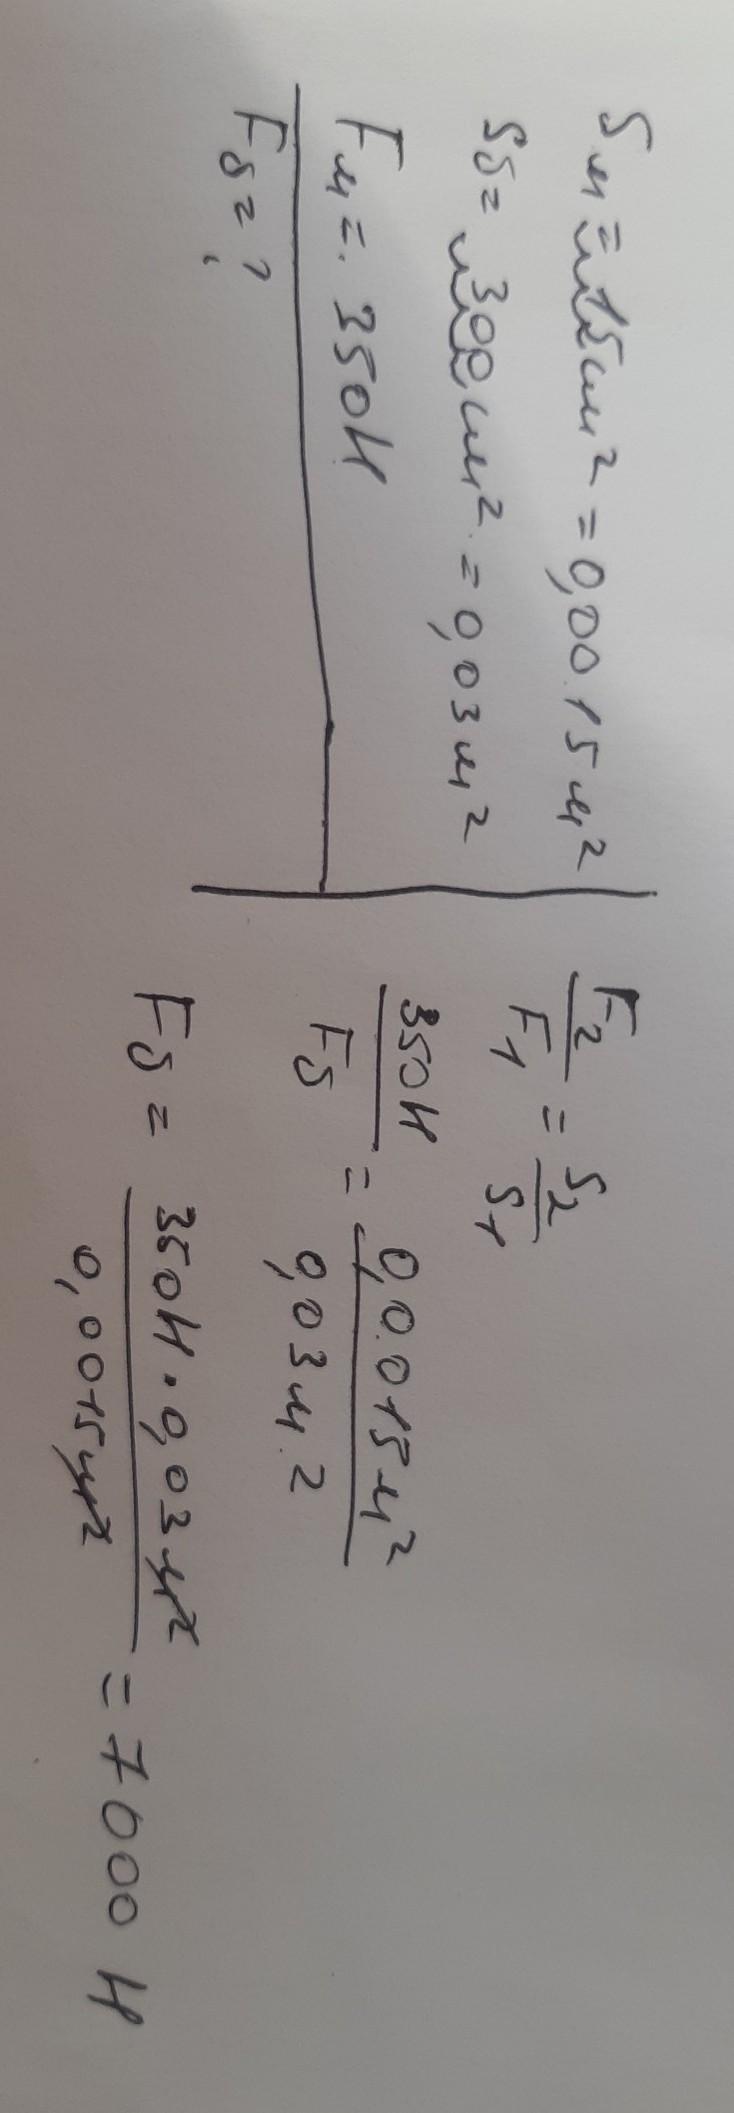 Sм = 15 см² = 0,0015 м²
Sб = 300 см² = 0,03 м²
Fм = 350 Н
Fб = ?
F₂/F₁ = S₂/S₁
350Н/Fб = 0,0015 м²/0,03 м²
Fб = 350Н · 0,03 м²/0,0015 м² = 7000 Н